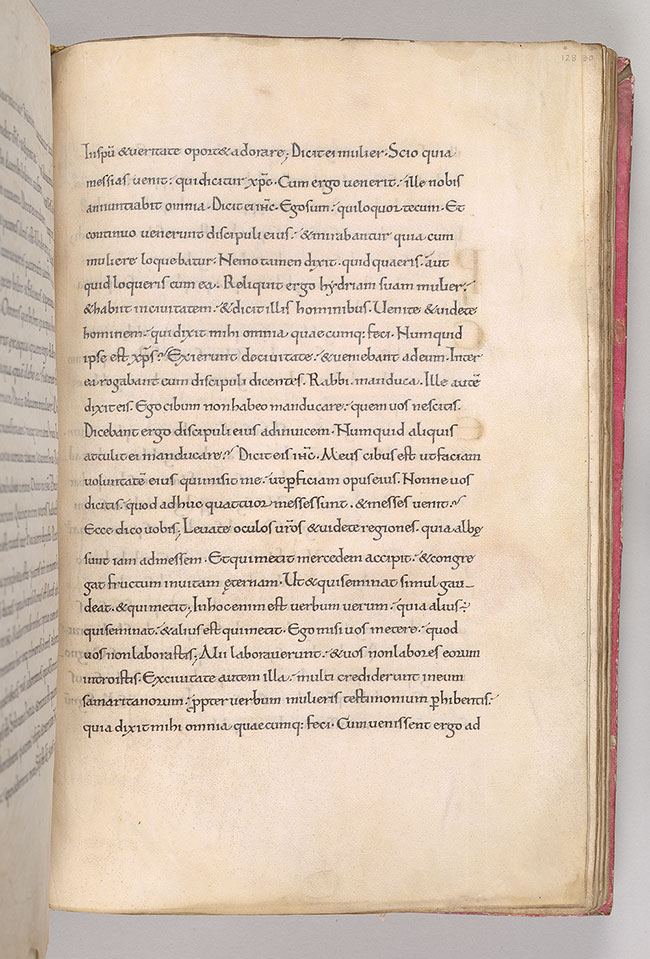 128 90
Inspū & veritate oport& adorare; Dicit ei mulier. Scio quia
messias venit. qui dicitur xp̄c. Cum ergo venerit. ille nobis
annuntiabit omnia. Dicit ei ih̄c. Ego sum. qui loquor tecum. Et
continuo venerunt discipuli eius. & mirabantur quia cum
muliere loquebatur. Nemo tamen dixit. quid quaeris. aut
quid loqueris cum ea. Reliquit ergo hydriam suam mulier.
& habiit in civitatem. & dicit illis hominibus. Venite & videte
hominem. qui dixit mihi omnia quaecumq; feci. Numquid
ipse est xp̄s? Exierunt de civitate. & veniebant ad eum. Inter
ea rogabant eum discipuli dicentes. Rabbi. manduca. Ille autē
dixit eis. Ego cibum non habeo manducare. quem vos nescitis.
Dicebant ergo discipuli eius ad invicem. Numquid aliquis
attulit ei manducare? Dicit eis ih̄c. Meus cibus est ut faciam
voluntatē eius qui misit me. ut p̄ficiam opus eius. Nonne vos
dicitis. quod adhuc quattuor messes sunt. & messes venit?
Ecce dico vobis; Levate oculos vr̄os & videte regiones. quia albę
sunt iam ad messem. Et qui metit mercedem accipit. & congre
gat fructum in vitam ęternam. Ut & qui seminat simul gau
deat. & qui metit; In hoc enim est verbum verum. quia alius.
qui seminat. & alius est qui metit. Ego misi vos metere. quod
vos non laborastis; Alii laboraverunt. & vos non labores eorum
introistis. Ex civitate autem illa. multi crediderunt in eum
samaritanorum. p̄pter verbum mulieris testimonium p̄hibentis.
quia dixit mihi omnia quaecumq; feci. Cum venissent ergo ad